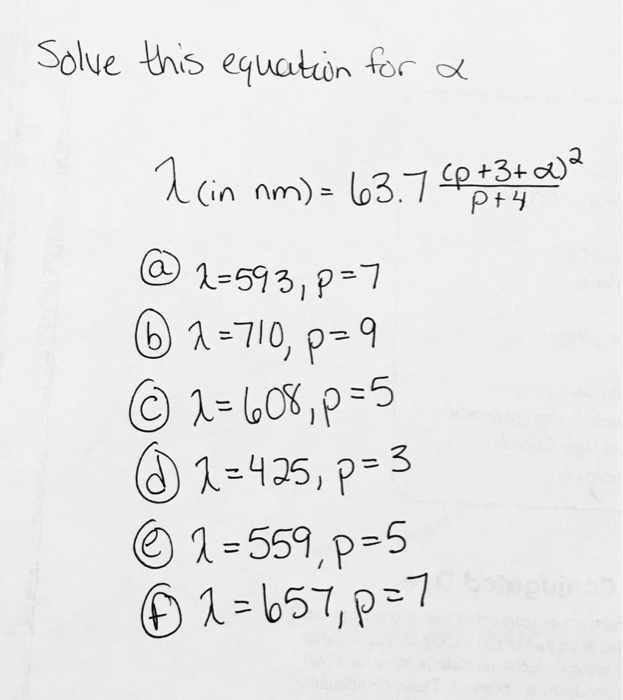 Solve this equation for α
λ (in nm) = 63.7 (p+3+α)² / p+4
ⓐ λ=593, p=7
ⓑ λ=710, p=9
ⓒ λ=608, p=5
ⓓ λ=425, p=3
ⓔ λ=559, p=5
ⓕ λ=657, p=7
Conjugated D